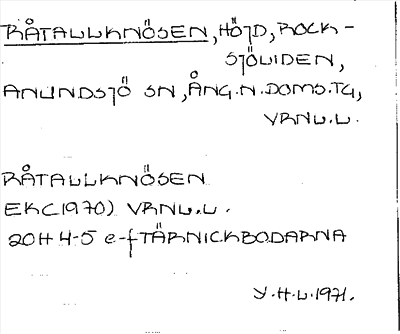 RÅTALLKNÖSEN, HÖJD, ROCK-
SJÖLIDEN,
ANUNDSJÖ SN, ÅNG.N.DOMS.TG,
VRNL.L.
RÅTALLKNÖSEN
EK(1970) VRNL.L.
20H 4-5 e-f TÄRNICKBODARNA
Y.H.L.1971.